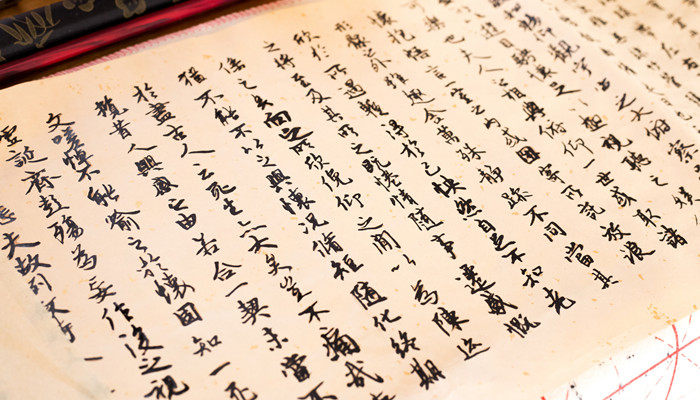 仰觀宇宙之大俯察
遊目騁懷足以極視聽之
可樂也夫人之相與俯仰一世或取諸
懷抱悟言一室之內或因寄所託放浪
形骸之外雖趣舍萬殊靜躁不同當其
欣於所遇暫得於己快然自足不知老
之將至及其所之既惓情隨事遷感慨
係之矣向之所欣俛仰之間以為陳迹
猶不能不以之興懷況脩短隨化終期
於盡古人云死生亦大矣豈不痛哉
攬昔人興感之由若合一契未嘗不
文嗟悼不能喻之於懷固知一死
虛誕齊彭殤為妄作後之視
悲夫故列敘時